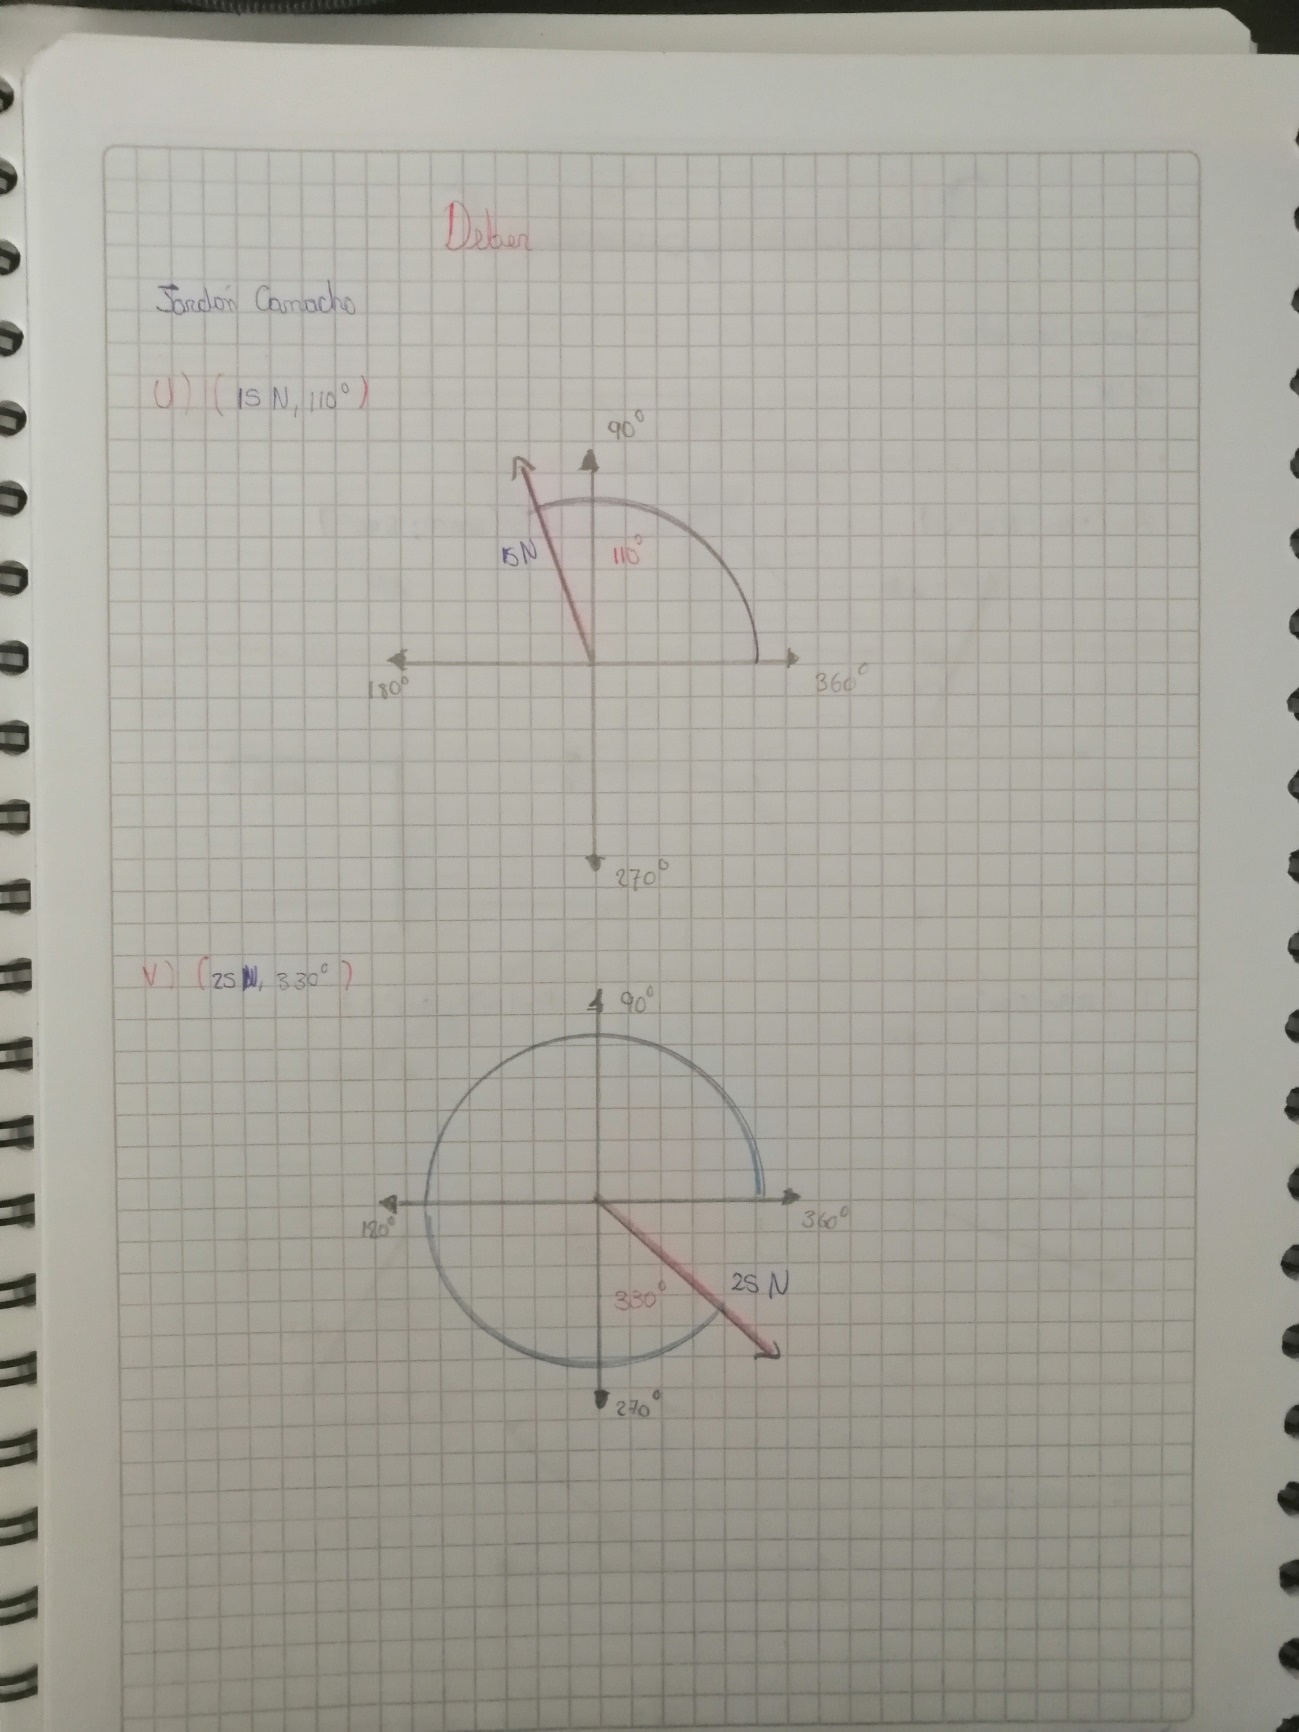 Deber
Jordón Camacho
U) (15 N, 110°)
90°
15N
110°
180°
360°
270°
V) (25 N, 330°)
90°
180°
360°
25 N
330°
270°